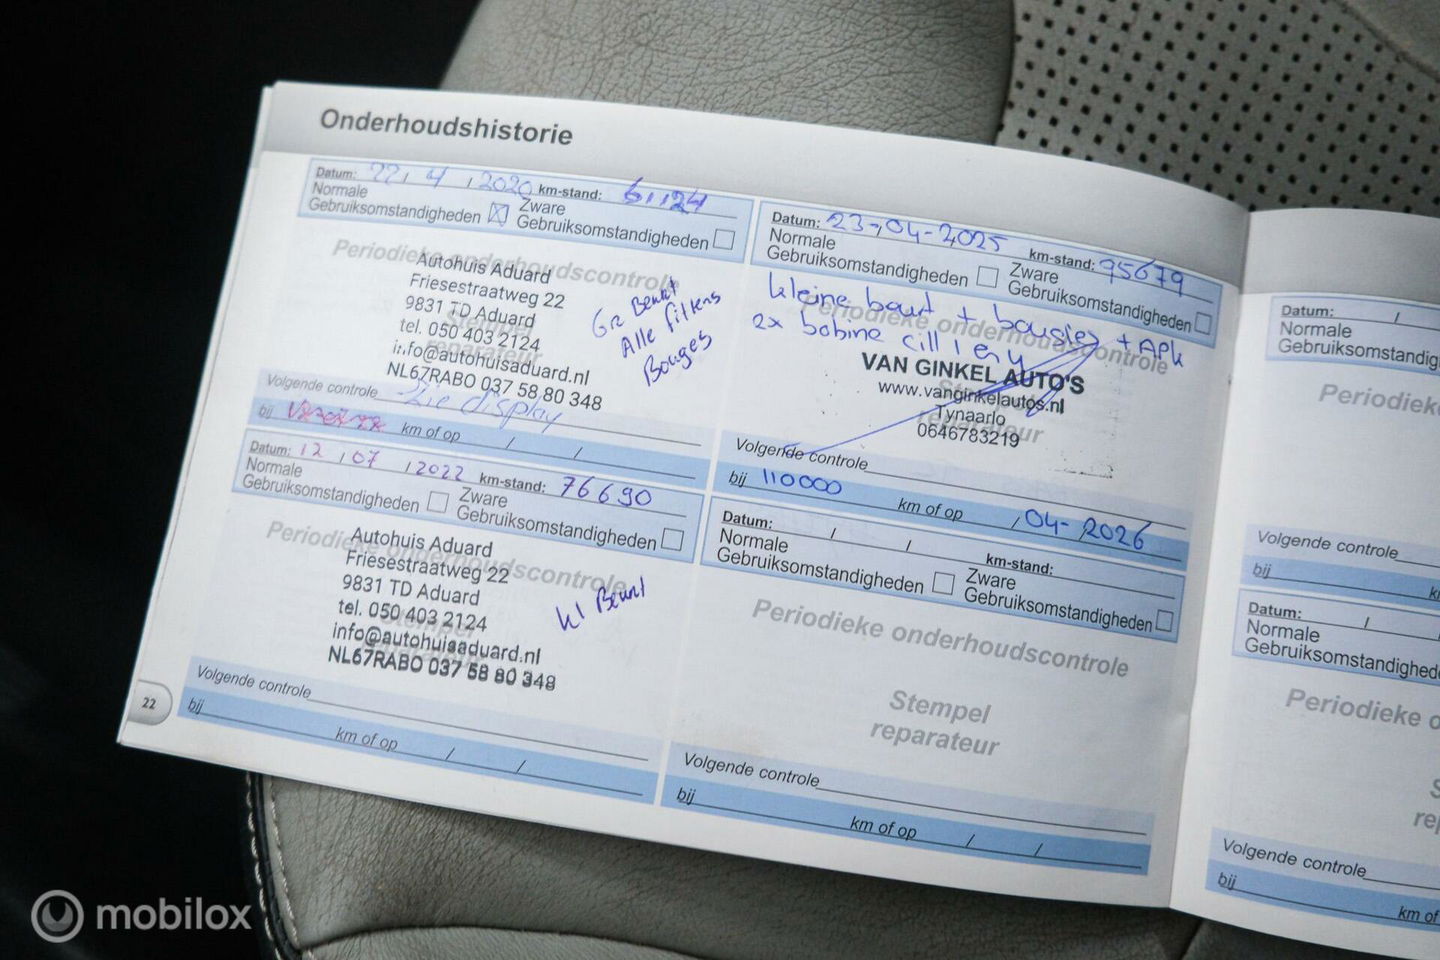 Onderhoudshistorie
Datum: 22, 4, 2020 km-stand: 61124
Normale
Gebruiksomstandigheden X Zware
Gebruiksomstandigheden
Periodieke onderhoudscontrole
Stempel
reparateur
Autohuis Aduard
Friesestraatweg 22
9831 TD Aduard
tel. 050 403 2124
info@autohuisaduard.nl
NL67RABO 037 58 80 348
Gr Beurt
Alle filters
Bouges
Volgende controle Zie display
bij km of op / /
Datum: 12, 07, 2022 km-stand: 76690
Normale
Gebruiksomstandigheden Zware
Gebruiksomstandigheden
Periodieke onderhoudscontrole
Stempel
reparateur
Autohuis Aduard
Friesestraatweg 22
9831 TD Aduard
tel. 050 403 2124
info@autohuisaduard.nl
NL67RABO 037 58 80 348
kl Beurt
Volgende controle
bij
km of op / /
22
Datum: 23-04-2025 km-stand: 95679
Normale
Gebruiksomstandigheden Zware
Gebruiksomstandigheden
Periodieke onderhoudscontrole
Stempel
reparateur
kleine beurt + bougies + APK
2x bobine cill 1 en 4
VAN GINKEL AUTO'S
www.vanginkelautos.nl
Tynaarlo
0646783219
Volgende controle
bij 110000 km of op / 04-2026
Datum: / / km-stand:
Normale
Gebruiksomstandigheden Zware
Gebruiksomstandigheden
Periodieke onderhoudscontrole
Stempel
reparateur
Volgende controle
bij
km of op / /
Datum: /
Normale
Gebruiksomstandig
Periodiek
Volgende controle
bij
k
Datum: /
Normale
Gebruiksomstandighed
Periodieke o
S
re
Volgende controle
bij
km of
mobilox